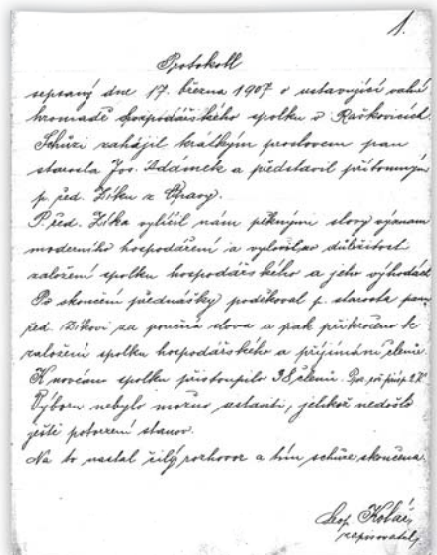 1.
Protokoll
sepsaný dne 17. března 1907 o ustavující valné
hromadě hospodářského spolku v Raškovicích.
Schůzi zahájil krátkým proslovem pan
starosta Jos. Adámek a představil přítomným
p. řed. Zíku z Opavy.
P. řed. Zíka vylíčil nám pěknými slovy význam
moderního hospodaření a důležitost
založení spolku hospodářského a jeho výhodách
Po skončení přednášky poděkoval p. starosta panu
řed. Zíkovi za poučná slova a pak přikročeno k
založení spolku hospodářského a přijímání členů.
K novému spolku přistoupilo 38 členů.
Výboru nebylo možno ustaviti, jelikož nedošlo
ještě potvrzení stanov.
Na to nastal čilý rozhovor a tím schůze skončena.
Leop. Kolář,
zapisovatel.